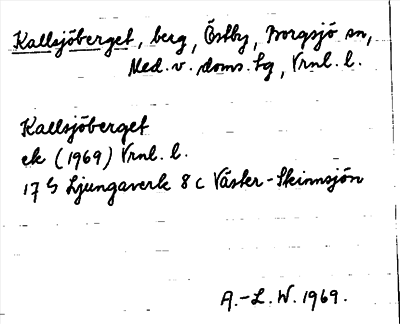 Kallsjöberget, berg, Östby, Borgsjö sn,
Med. v. doms. tg, Vrnl. l.
Kallsjöberget
ek (1969) Vrnl. l.
17 G Ljungaverk 8 c Väster-Skinnsjön
A.-L. W. 1969.